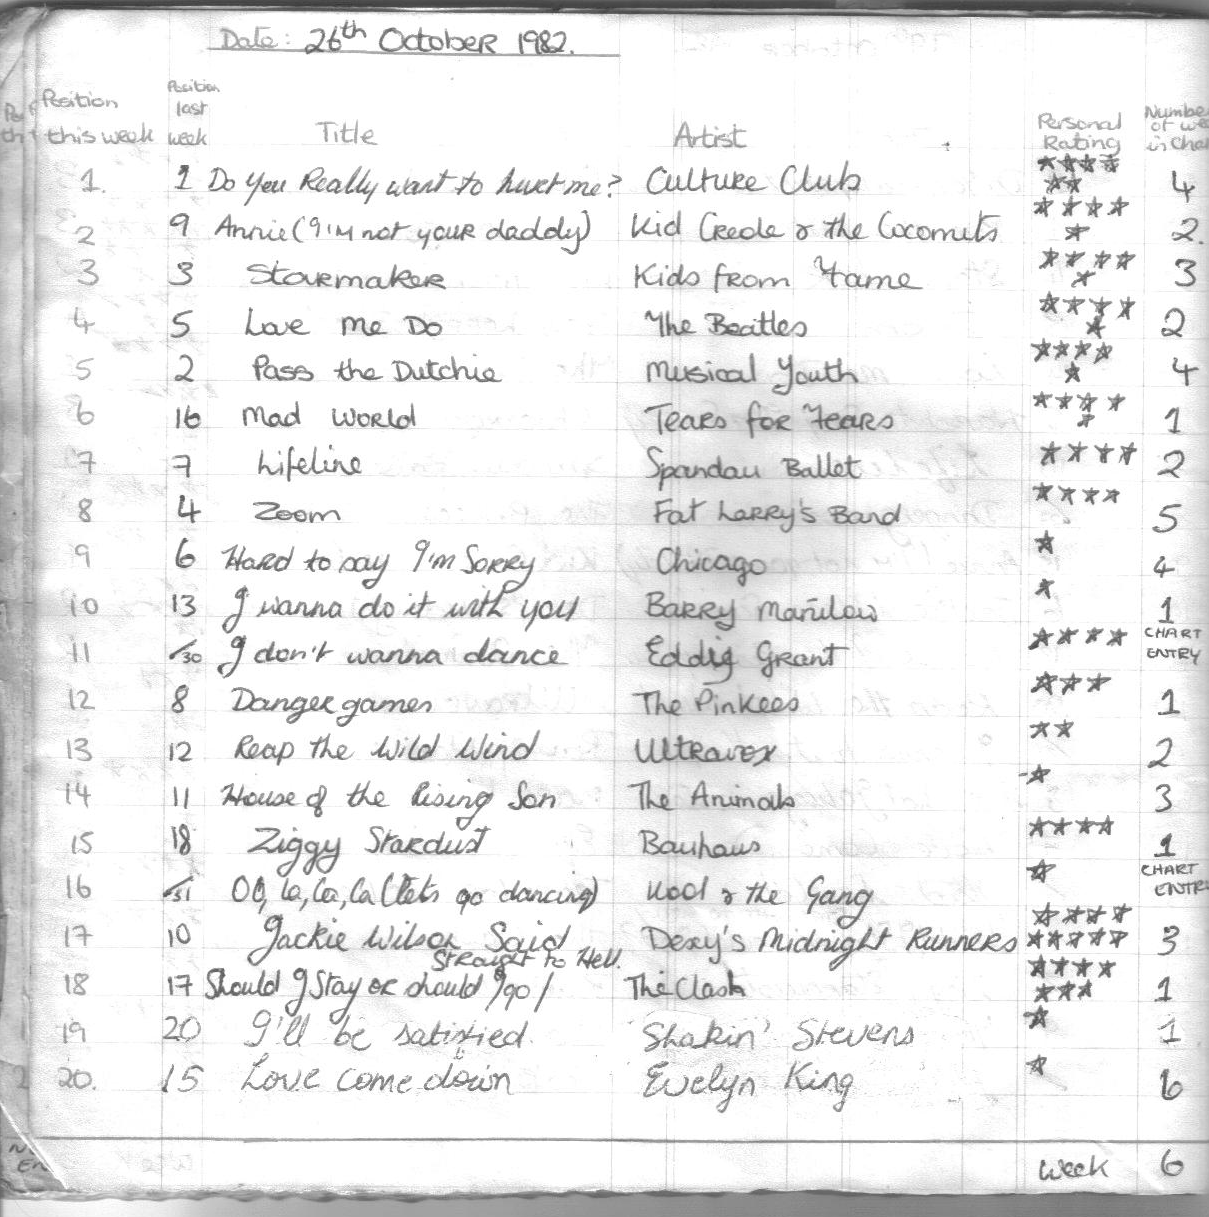 Date: 26th October 1982.
Position this week Position last week Title Artist Personal Rating Number of we in Char
1. 1 Do You Really want to hurt me? Culture Club ★★★★★★ 4
2 9 Annie (I'm not your daddy) Kid Creole & the Coconuts ★★★★★ 2.
3 3 Starmaker Kids from Fame ★★★★★ 3
4 5 Love Me Do The Beatles ★★★★★ 2
5 2 Pass the Dutchie Musical Youth ★★★★★ 4
6 16 Mad World Tears for Fears ★★★★★ 1
7 7 Lifeline Spandau Ballet ★★★★ 2
8 4 Zoom Fat Larry's Band ★★★★ 5
9 6 Hard to say I'm Sorry Chicago ★ 4
10 13 I wanna do it with you Barry Manilow ★ 1
11 /30 I don't wanna dance Eddie Grant ★★★★ CHART ENTRY
12 8 Danger games The Pinkees ★★★ 1
13 12 Reap the Wild Wind Ultravox ★★ 2
14 11 House of the Rising Son The Animals ★ 3
15 18 Ziggy Stardust Bauhaus ★★★★ 1
16 /31 Oo, La, La, La (lets go dancing) Kool & the Gang ★ CHART ENTR
17 10 Jackie Wilson Said Dexy's Midnight Runners ★★★★★★★★★ 3
Straight to Hell.
18 17 Should I Stay or should I go / The Clash ★★★★★★★ 1
19 20 I'll be satisfied Shakin' Stevens ★ 1
20. 15 Love come down Evelyn King ★ 6
Week 6